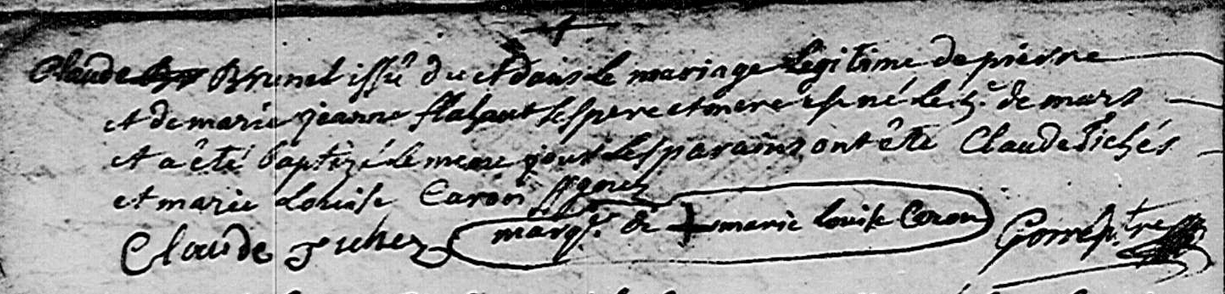 Claude Brunel issû du et dans le mariage legitime de pierre
et de marie jeanne flahaut ses pere et mere est né le 5e de mars
et a été baptizé le meme jour les parains ont été Claude Fichés
et marie Louise Caron
Claude Fichez marq. de + marie Louise Caron ptre